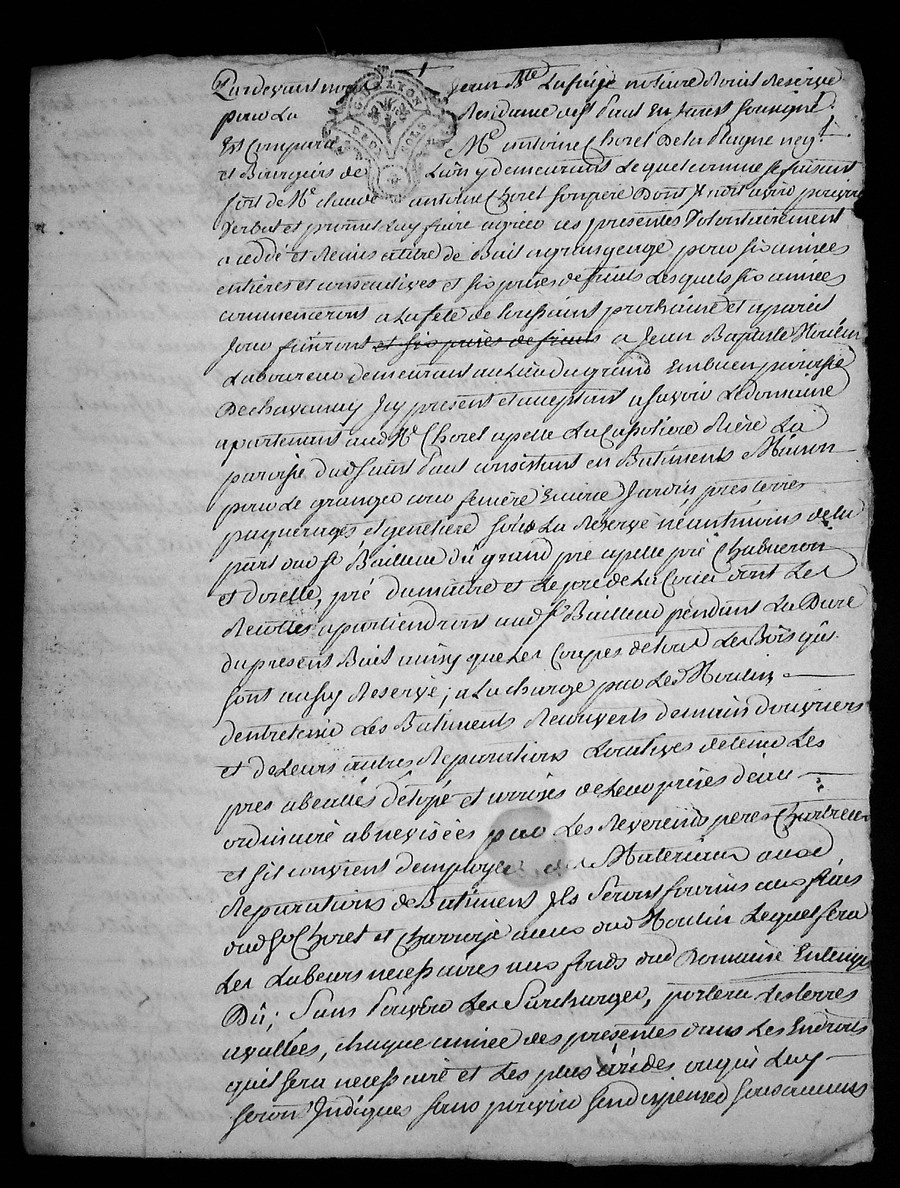 Pardevant no Jean Bte Lafaije notaire Roial Reservé
pour La Residance de st paul En Jarest soussigné
Est Comparu Mr antoine Choret Dela plaigne negt
et Bourgeois de Lion y demeurant Lequel comme se faisant
fort de Mr claude antoine Choret son pere Dont Il nous a
verbal et promet Luy faire agréer ces presentes Volontairement
a cedé et Remis a titre de Bail a grangeage pour six années
entières et consecutives et six prises de fruits Lesquels six années
commenceront a La fete de toussaint prochaine et a pareil
Jour finiront et six prises de fruits a Jean Baptiste Moulin
Laboureur demeurant au Lieu du grand Embuen paroisse
De chavannay Icy present et acceptant a savoir Le domaine
apartenant aud Mr Choret apellé La Capotiere Riere La
paroisse dud saint paul consistant en Batiments Maison
pour Le granger cour feniere Ecurie Jardin pres terres
paquerages et genetiere sous La Reserve néantmoins de la
part dud Sr Bailleur du grand pré apellé pré Chabneron
et dorelle, pré dumaitre et Le pré de La Corée dont Les
Recoltes apartiendront aud Sr Bailleur pendant La Duré
du present Bail aussy que Les Coupes de tous Les Bois qui
sont aussy Reservé; a La charge par Led Moulin
dentretenir Les Batiments Recouverts de main douvriers
et de Leurs autres Reparations Locatives de tenir Les
pres abealés détopé et arrosés de Leur prises deau
ordinaire abnevisées par Les Reverends peres Chartreux
et sil convient demployer des Materiaux auxd
Reparations de Batiment Ils seront fournis aux frais
dud Sr Choret et Charroyé aceux dud Moulin Lequel fera
Les Labeurs necessaires aux fonds dud Domaine En temps
Dû; Sans pouvoir Les Surcharger, portera Les terres
avallées, chaque année des presentes dans Les Endroits
quil sera necessaire et Les plus arides ou qui Luy
seront Indiqués sans pouvoir sen dispenser sous aucuns